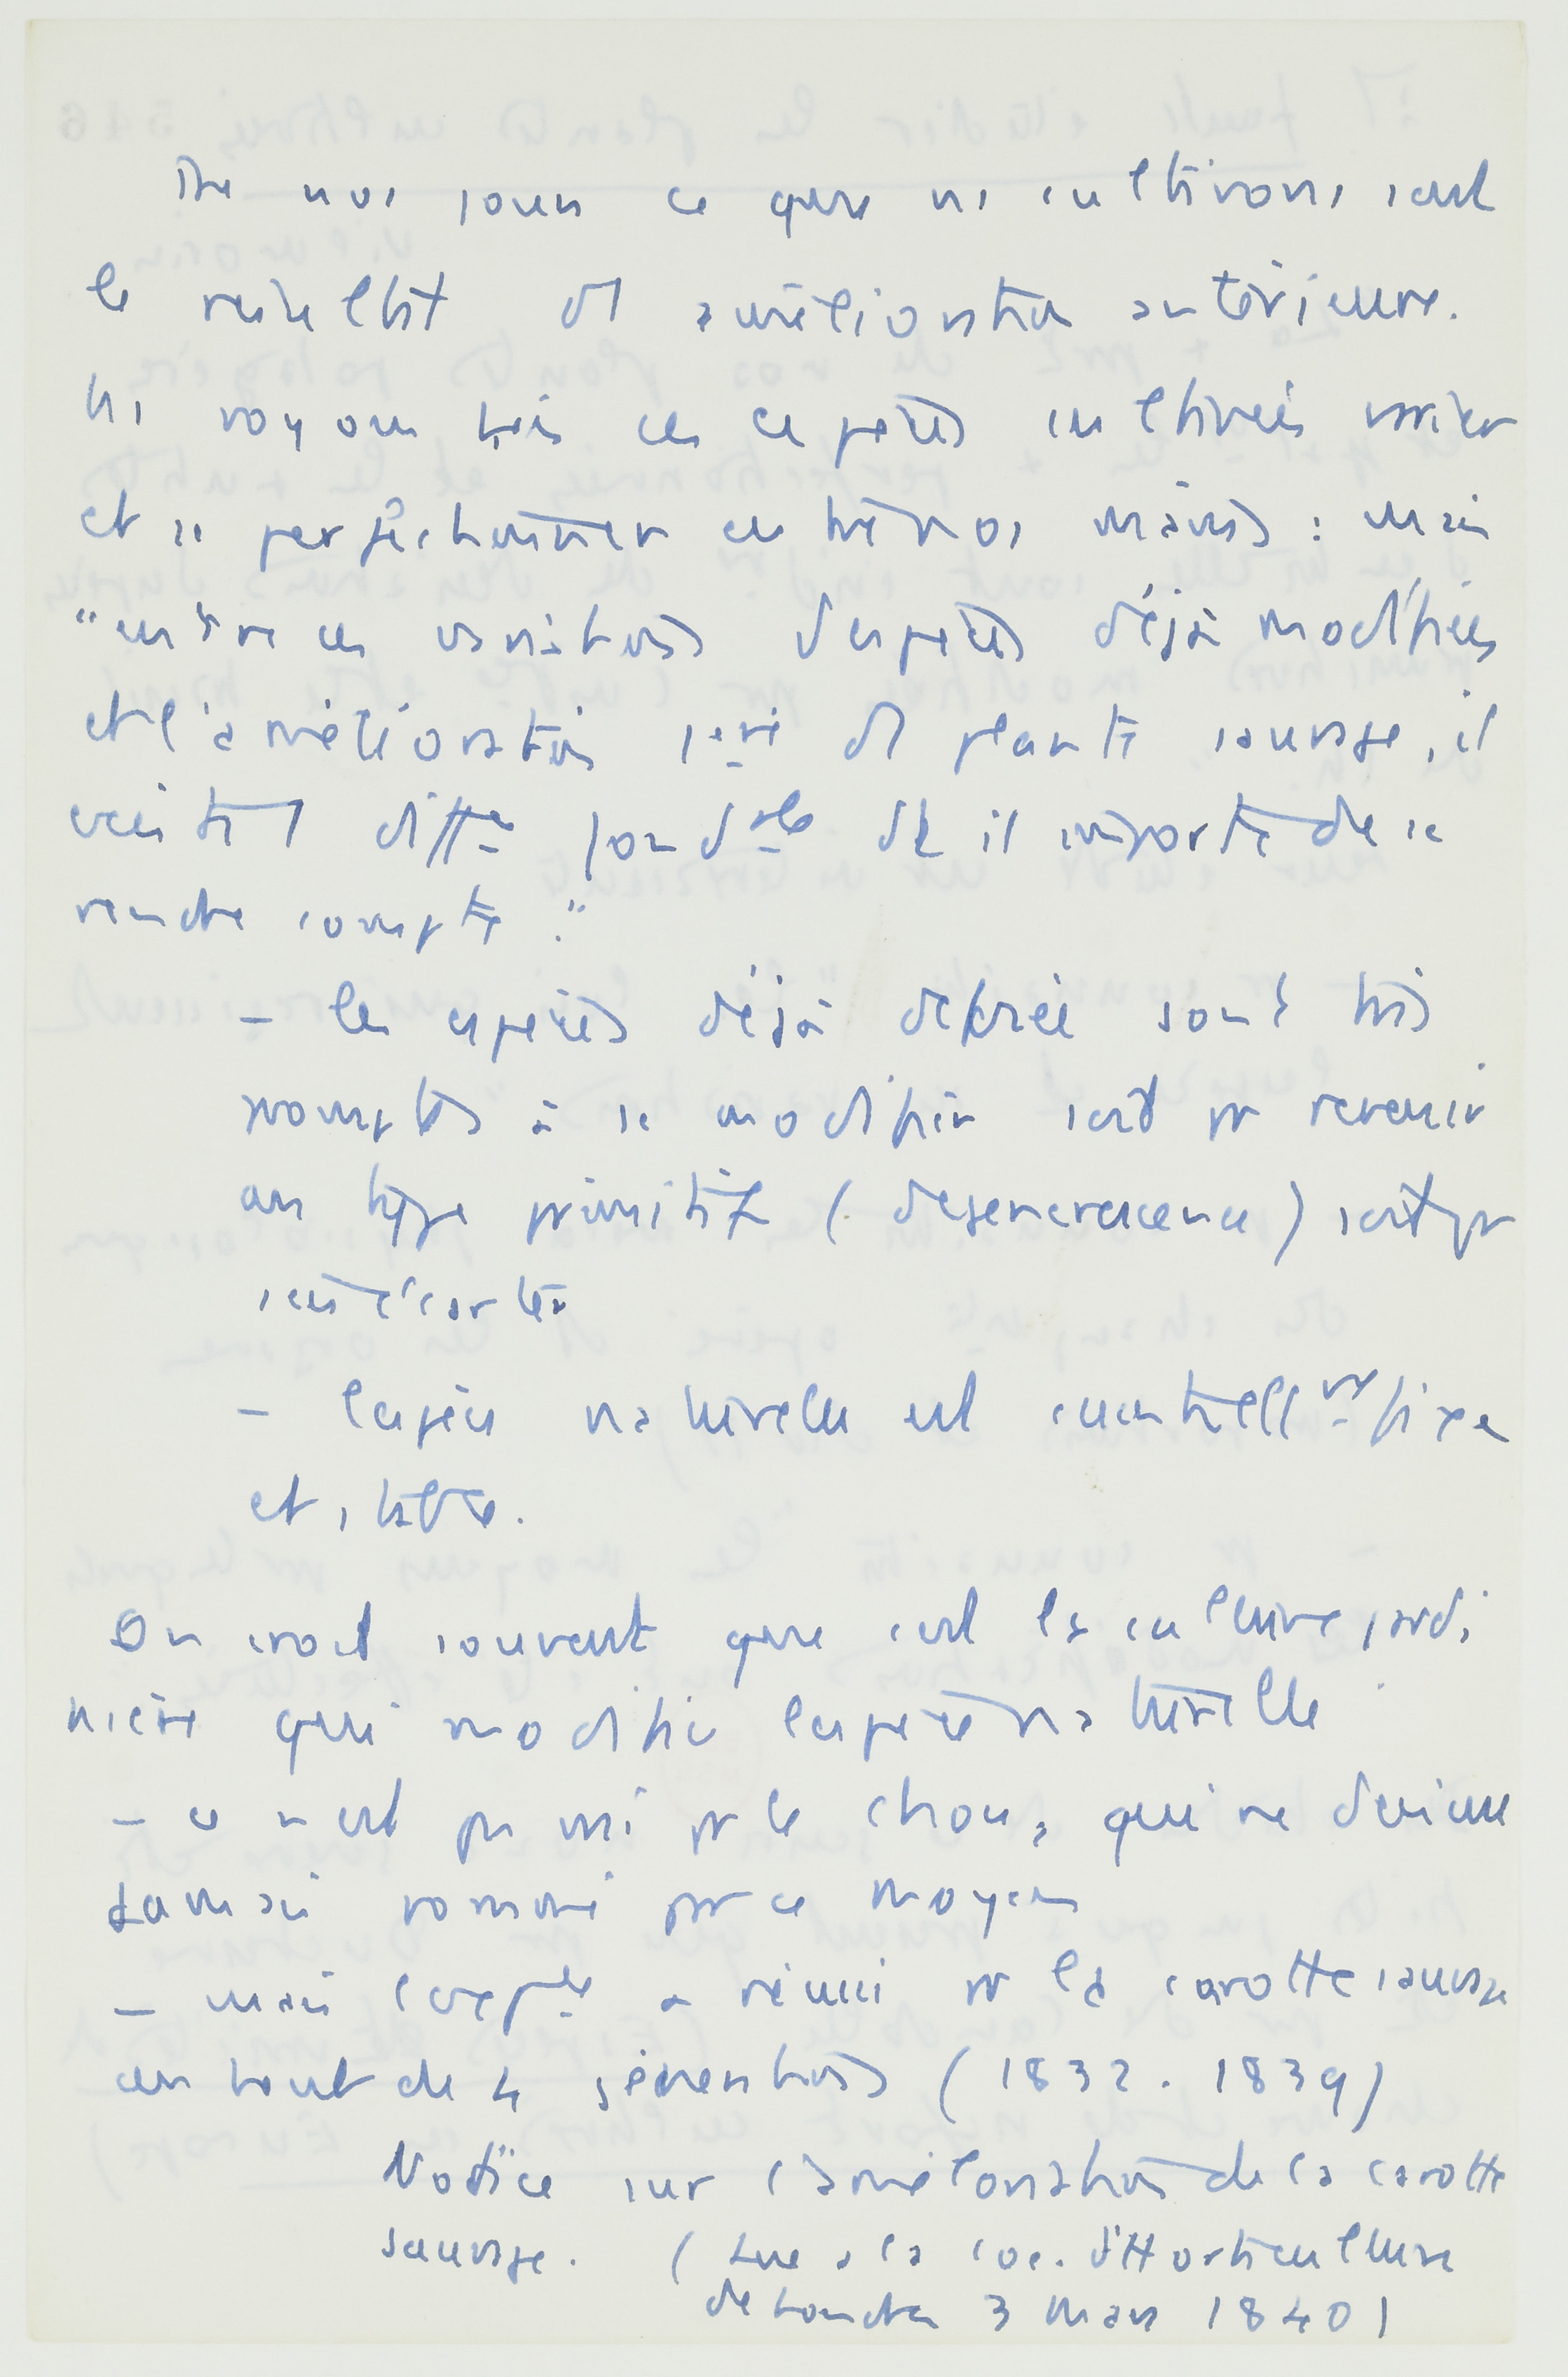 De nos jours ce que ns cultivons, c'est
le résultat d'1 amélioration antérieure.
Ns voyons bien ces espèces cultivées varier
et se perfectionner entre nos mains : mais
"entre ces variations d'espèces déjà modifiées
et l'amélioration 1ère d'1 plante sauvage, il
existe 1 diffce fondale dt il importe de se
rendre compte."
- les espèces déjà dérivées sont très
promptes à se modifier soit pr revenir
au type primitif (dégénérescence) soit pr
s'en écarter
- l'espèce naturelle est essentiellmt fixe
et stable.
On croit souvent que c'est la culture jardi
nière qui modifie l'espèce naturelle
- ce n'est pas vrai pr le chou, qui ne devient
jamais pommé par ce moyen
- mais l'expce a réussi pr la carotte sauvage
au bout de 4 générations (1832-1839)
Notice sur l'amélioration de la carotte
sauvage. (Lue à la soc. d'Horticulture
de Londres 3 mars 1840)